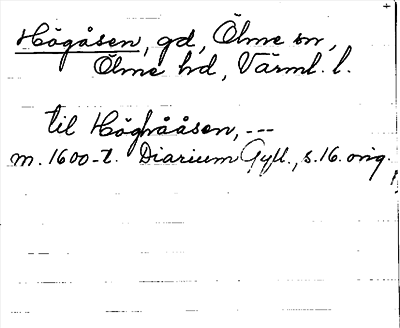 Högåsen, gd, Ölme sn,
Ölme hd, Värml. l.
til Höghååsen, ---
m. 1600-t. Diarium Gyll., s. 16. orig.